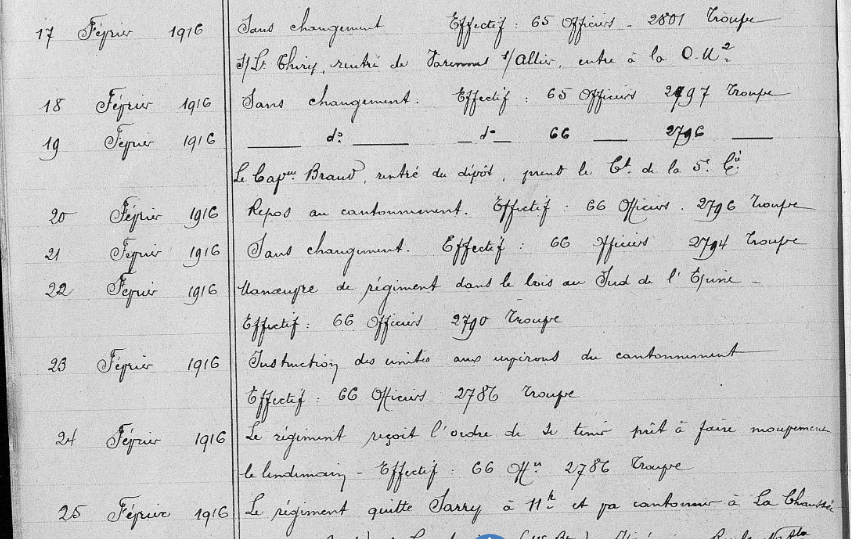 17 Février 1916 Sans changement Effectif : 65 Officiers - 2801 Troupe
S/Lt Thiry, rentré de Varennes s/Allier, entre à la C.M².
18 Février 1916 Sans changement. Effectif : 65 Officiers 2797 Troupe
19 Février 1916 — d° — — d° — 66 — 2796 —
Le Capne Braud, rentré du dépôt, prend le Ct de la 5e Cie
20 Février 1916 Repos au cantonnement. Effectif : 66 Officiers. 2796 Troupe
21 Février 1916 Sans changement. Effectif : 66 Officiers 2794 Troupe
22 Février 1916 Manœuvre de régiment dans le bois au Sud de l'Epine -
Effectif : 66 Officiers 2790 Troupe
23 Février 1916 Instruction des unités aux environs du cantonnement
Effectif : 66 Officiers 2786 Troupe
24 Février 1916 Le régiment reçoit l'ordre de se tenir prêt à faire mouvement
le lendemain - Effectif : 66 Offrs 2786 Troupe
25 Février 1916 Le régiment quitte Sarry à 11h et va cantonner à La Chaussée